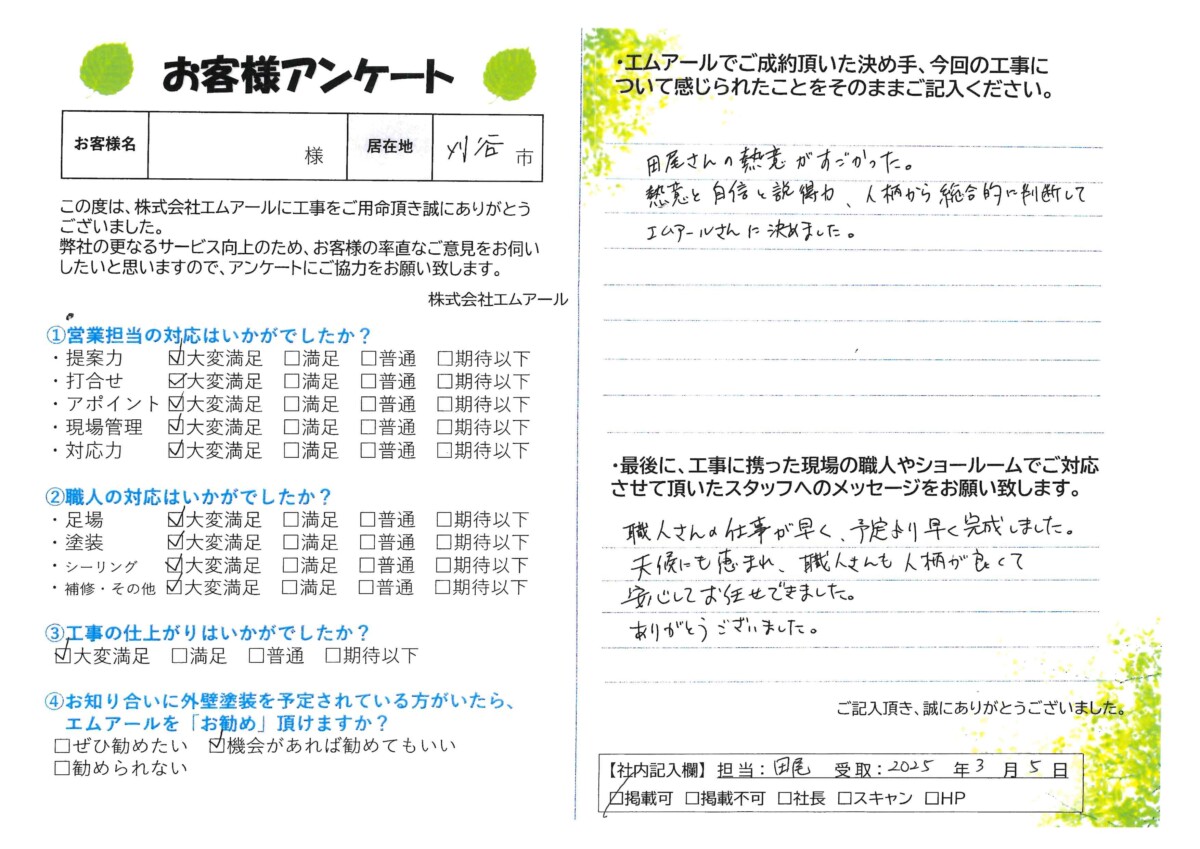 お客様アンケート
お客様名 様 居在地 刈谷 市
この度は、株式会社エムアールに工事をご用命頂き誠にありがとう
ございました。
弊社の更なるサービス向上のため、お客様の率直なご意見をお伺い
したいと思いますので、アンケートにご協力をお願い致します。
株式会社エムアール
①営業担当の対応はいかがでしたか？
・提案力 ☑大変満足 □満足 □普通 □期待以下
・打合せ ☑大変満足 □満足 □普通 □期待以下
・アポイント ☑大変満足 □満足 □普通 □期待以下
・現場管理 ☑大変満足 □満足 □普通 □期待以下
・対応力 ☑大変満足 □満足 □普通 □期待以下
②職人の対応はいかがでしたか？
・足場 ☑大変満足 □満足 □普通 □期待以下
・塗装 ☑大変満足 □満足 □普通 □期待以下
・シーリング ☑大変満足 □満足 □普通 □期待以下
・補修・その他 ☑大変満足 □満足 □普通 □期待以下
③工事の仕上がりはいかがでしたか？
☑大変満足 □満足 □普通 □期待以下
④お知り合いに外壁塗装を予定されている方がいたら、
エムアールを「お勧め」頂けますか？
□ぜひ勧めたい ☑機会があれば勧めてもいい
□勧められない
・エムアールでご成約頂いた決め手、今回の工事に
ついて感じられたことをそのままご記入ください。
田尾さんの熱意がすごかった。
熱意と自信と説得力、人柄から総合的に判断して
エムアールさんに決めました。
・最後に、工事に携った現場の職人やショールームでご対応
させて頂いたスタッフへのメッセージをお願い致します。
職人さんの仕事が早く、予定より早く完成しました。
天候にも恵まれ、職人さんも人柄が良くて
安心してお任せできました。
ありがとうございました。
ご記入頂き、誠にありがとうございました。
【社内記入欄】担当：田尾 受取：2025 年 3 月 5 日
☑掲載可 □掲載不可 □社長 □スキャン □HP